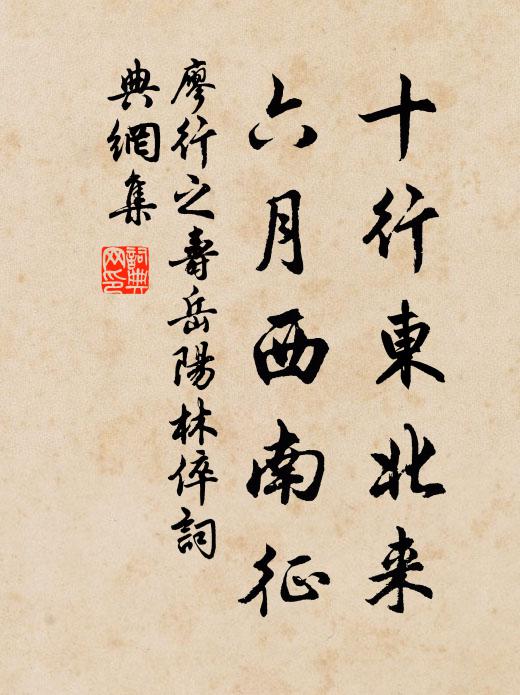 十行東北来
六月西南征
廖行之壽岳陽林倅詞
典網集
詞典網印